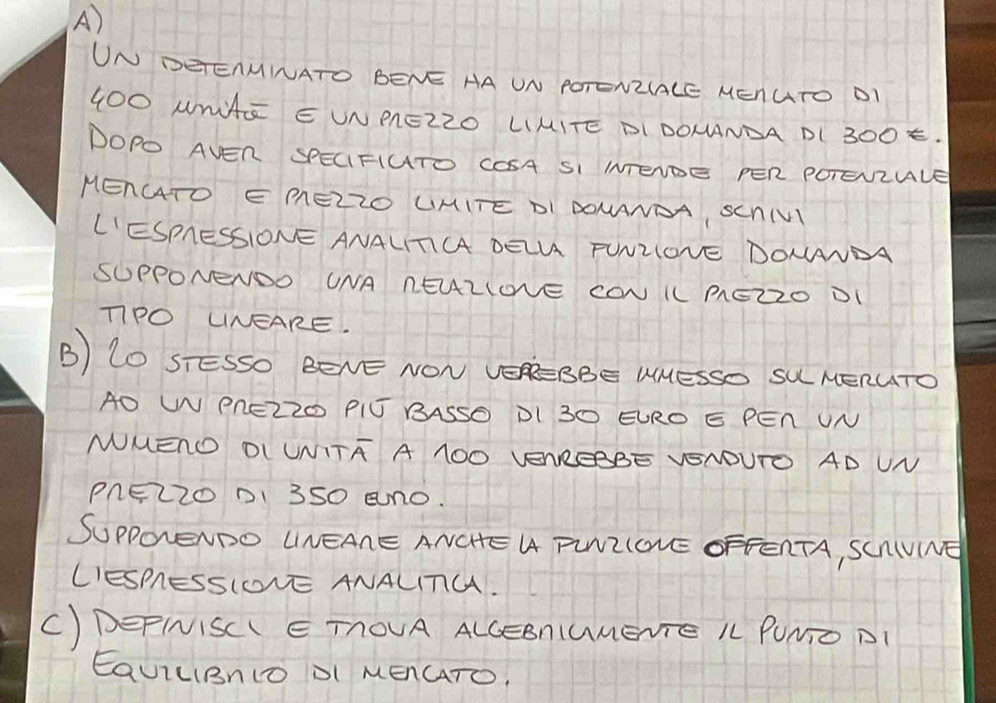 A)
UN DETERMINATO BENE HA UN POTENZIALE MERCATO DI
400 unità E UN PREZZO LIMITE DI DOMANDA DI 300 €.
DOPO AVER SPECIFICATO COSA SI INTENDE PER POTENZIALE
MERCATO E PREZZO LIMITE DI DOMANDA, SCRIVI
L'ESPRESSIONE ANALITICA DELLA FUNZIONE DOMANDA
SUPPONENDO UNA RELAZIONE CON IL PREZZO DI
TIPO LINEARE.
B) LO STESSO BENE NON VERREBBE IMMESSO SUL MERCATO
AD UN PREZZO PIÙ BASSO DI 30 EURO E PER UN
NUMERO DI UNITÀ A 100 VERREBBE VENDUTO AD UN
PREZZO DI 350 euro.
SUPPONENDO LINEARE ANCHE LA FUNZIONE OFFERTA, SCRIVINE
L'ESPRESSIONE ANALITICA.
C) DEFINISCI E TROVA ALGEBRICAMENTE IL PUNTO DI
EQUILIBRIO DI MERCATO.